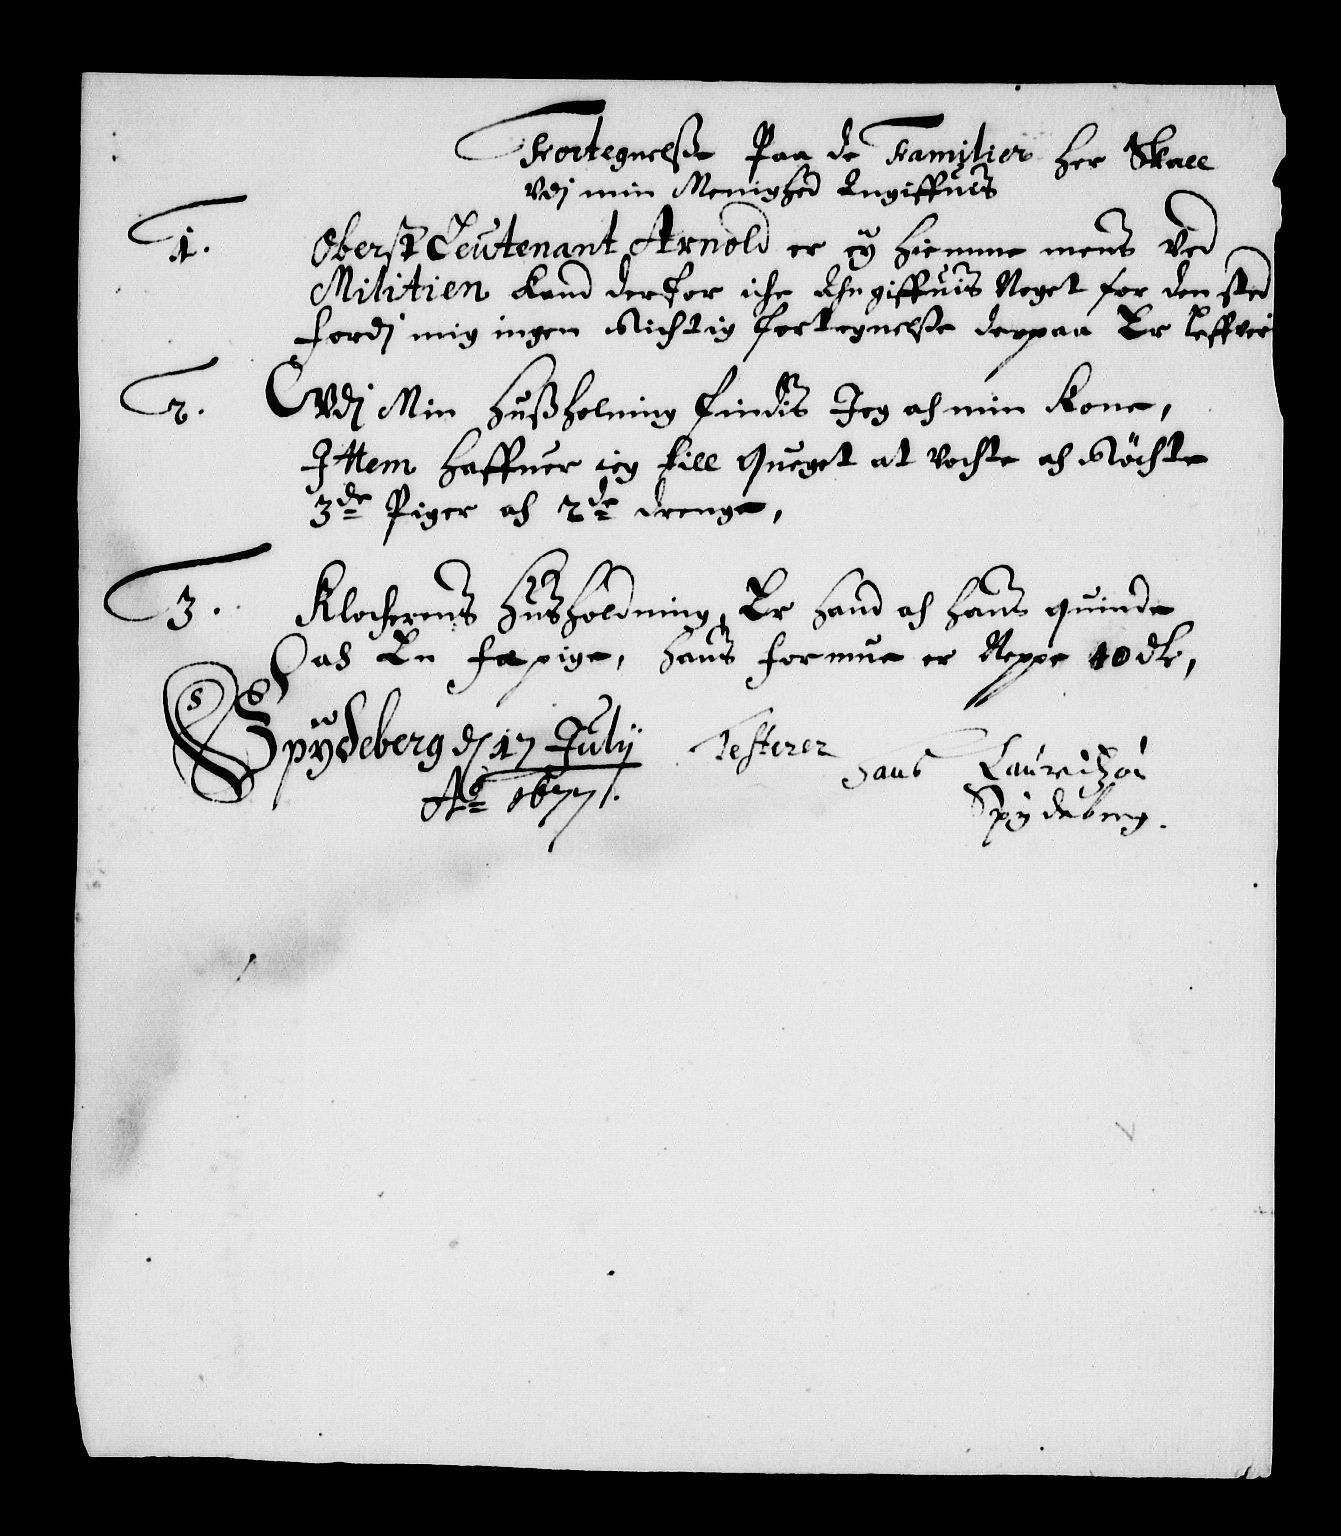 Fortegnelsse Paa de Familier her Skall
Vdj min Menighed Angiffuis
1. Oberst Leutenant Arnold er ey hiemme mens Ved
Militien Kand derfor iche Angiffuis Noget for den sted
fordj mig ingen Richtig fortegnelsse derpaa Er leffver
2. Vdj Min Hussholning findis Jeg och min Kone,
Ittem Haffuer ieg till Queget at vochte och Röchte
3de Piger och 2de drenge,
3. Klocherens Husholdning, Er Hand och Hans quinde
och En pige, Hans formue er Neppe 40 dlr,
Spydeberg d 17 Julij Testerer Hans Lauridtzøn
Ao 1677. Spydeberg.